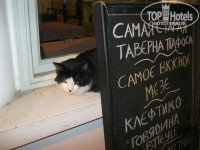 TopHotels
САМАЯ СТАРАЯ
ТАВЕРНА ПАФОСА
САМОЕ ВКУСНОЕ
МЕЗЕ
КЛЕФТИКО
ГОВЯДИНА
В ПЕЧИ